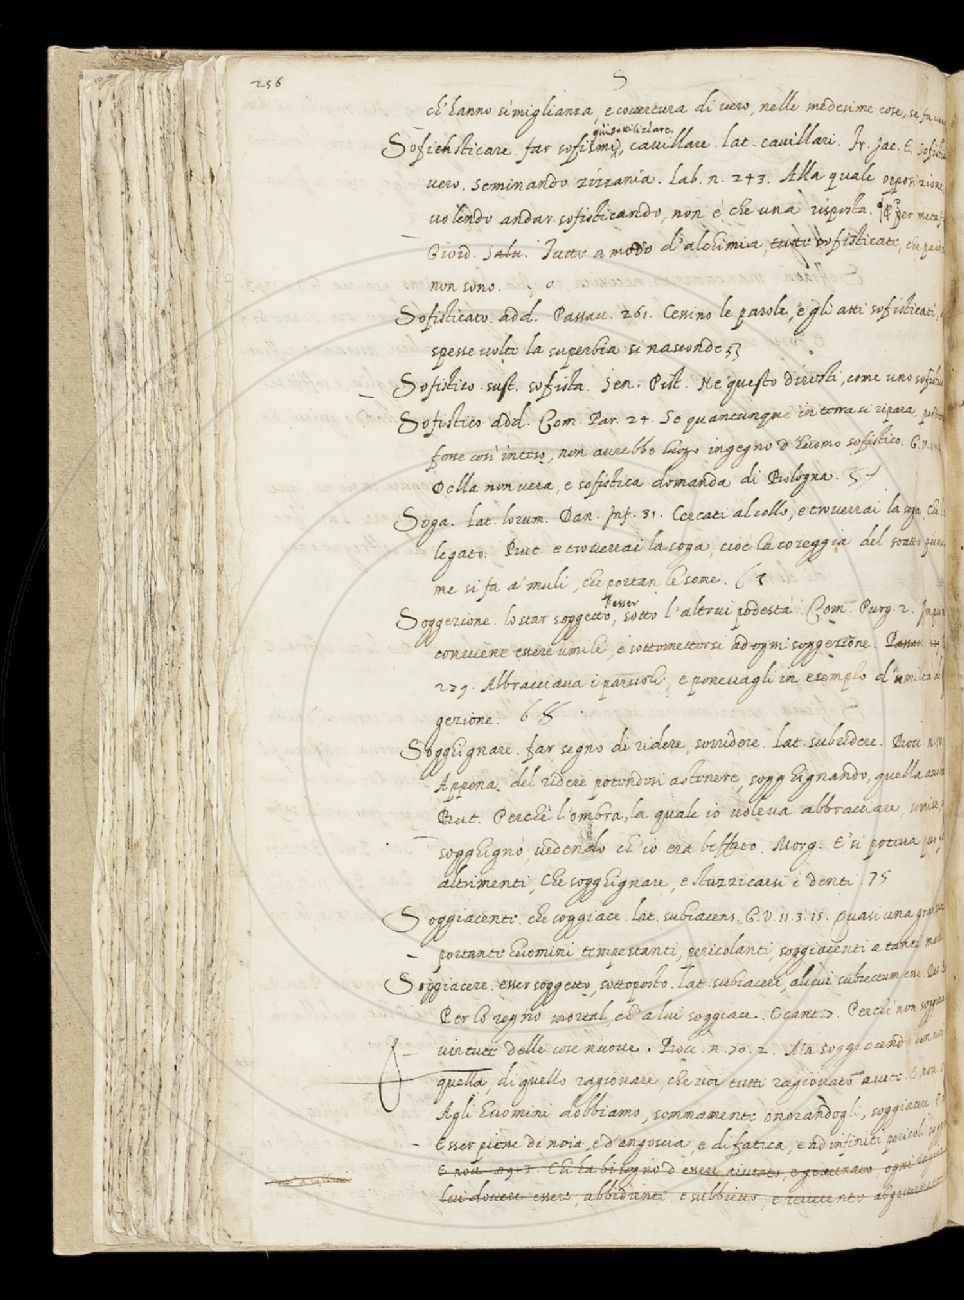 256
S
ch'hanno simiglianza, e covertura di vero, nelle medesime cose, se fa
Sofisticare. far sofismi, gui sottilizzare, cavillare. lat. cavillari. Fr. Jac. T. Sofist
vero, seminando zizzania. Lab. n. 243. Alla quale opposizione
volendo andar sofisticando, non è che una risposta. Per meta
Giord. Salu. Tutto a modo d'alchimia, tutto sofisticato, che paio
non sono.
Sofisticato. add. Passau. 261. Cessino le parole, e gli atti sofisticati,
spesse volte la superbia si nasconde 53
Sofistico. sust. sofista. Sen. Pist. Ne questo diresti, come uno sofist
Sofistico add. Com. Par. 24. Se quantunque in terra si ripara, per
fosse così inteso, non avrebbe luogo ingegno d'huomo sofistico. G.
Della non vera, e sofistica domanda di Bologna.
Soga. lat. lorum. Dan. Inf. 31. Cercati al collo, e troverrai la soga, Che
legato. But. e troverrai la soga, cioè la coreggia del
me si fa a' muli, che portan le some. 63
Soggezione. lo star soggetto, l'esser sotto l'altrui podestà. Com. Purg. 2.
conviene essere umile, e sottomettersi ad ogni soggezione. Passau
229. Abbracciava i parvoli, e ponevagli in esemplo d'umiltà
gezione. 68
Sogghignare. far segno di ridere, sorridere. lat. subridere. Bocc. n.
Appena del ridere potendosi astenere, sogghignando, quella
But. Perchè l'ombra, la quale io voleva abbracciare, sorrise,
sogghignò, vedendo ch'io era beffato. Morg. E si poteva
altrimenti, Che sogghignare, e stuzzicarsi e denti. 75
Soggiacente. che soggiace. lat. subiacens. G. V. 11. 3. 15. Quasi una gran
portante huomini tempestanti, pericolanti, soggiacenti a tanti
Soggiacere. esser soggetto, sottoposto. lat. subiacere, alicui subiectum esse.
Per lo regno mortal, ch'a lui soggiace. E cant. 7. Perchè non soggiace
virtute delle cose nuove. Bocc. n. 70. 2. Ma soggiacendo
quella, di quello ragionare, che voi tutti ragionato avete. E
Agli huomini dobbiamo, sommamente onorandogli, soggiacere.
Esser piene di noia, e d'angoscia, e di fatica, e ad infiniti pericoli
E nov. Chi ha bisogno d'essere aiutato, e governato, ogni
lui dovere essere, obbidiente, e subbietto, e reverente al governator